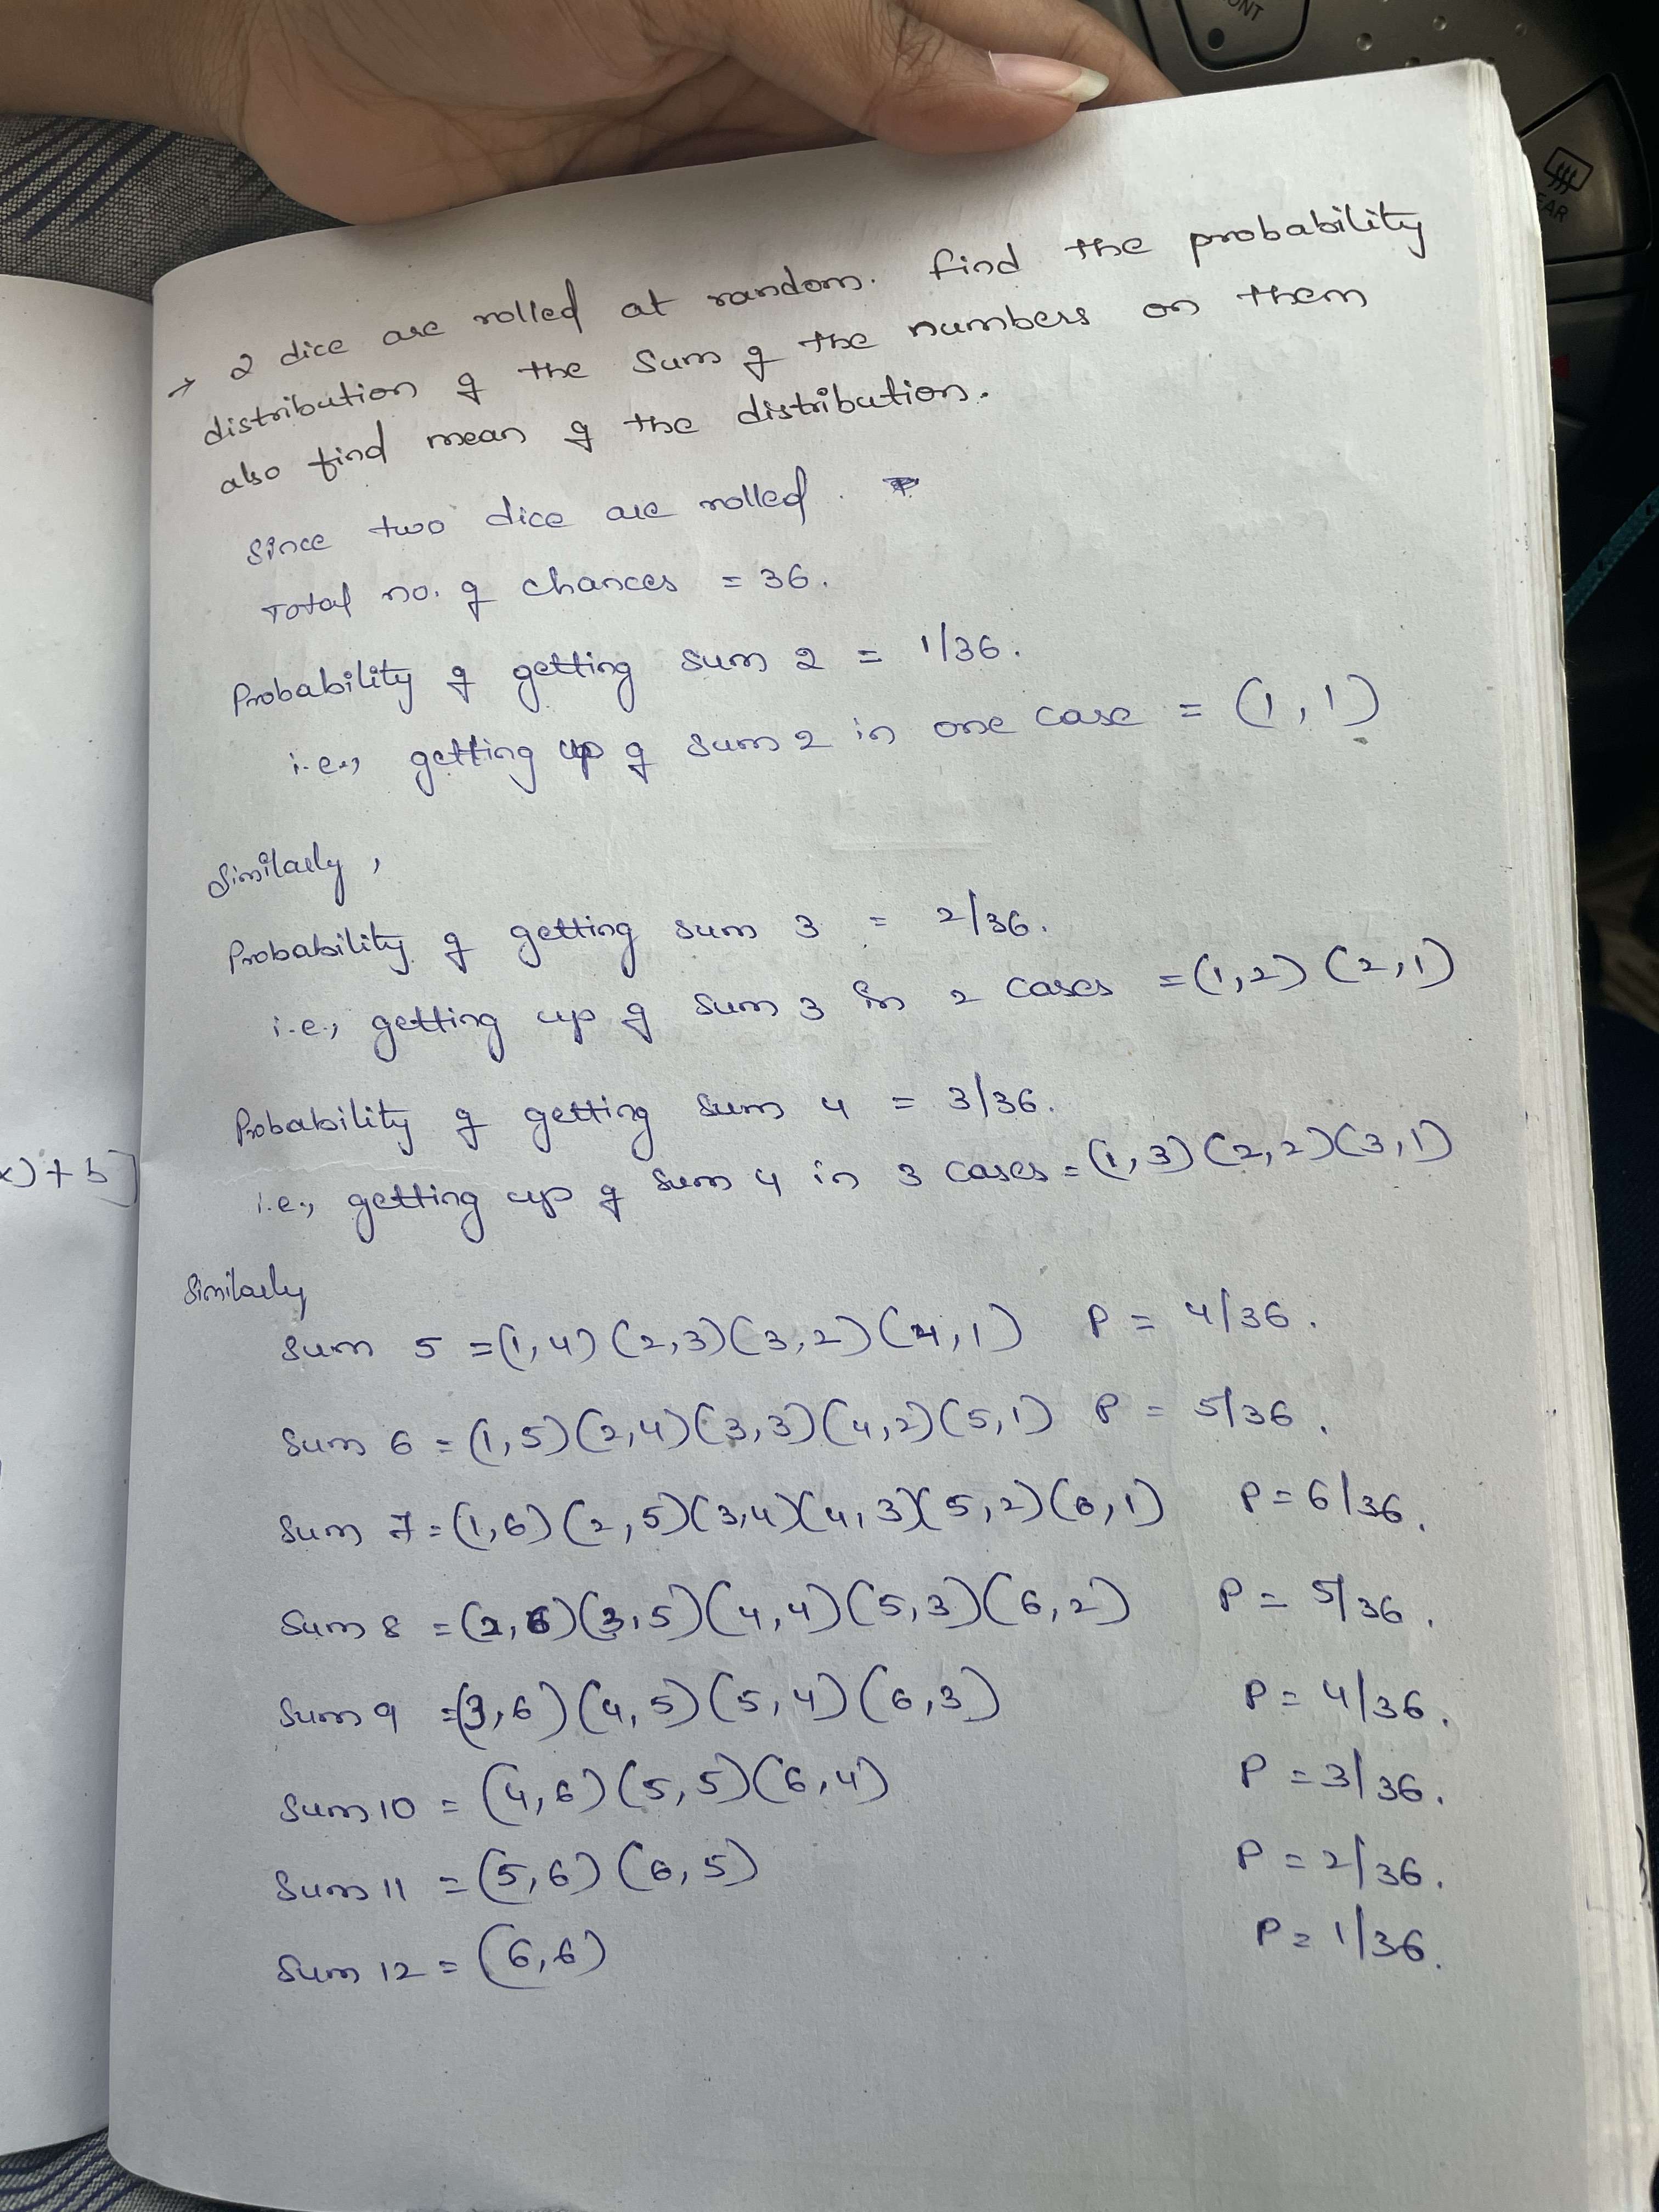 ONT
EAR
→ 2 dice are rolled at random. find the probability
distribution of the sum of the numbers on them
also find mean of the distribution.
Since two dice are rolled.
Total no. of chances = 36.
Probability of getting sum 2 = 1/36.
i.e., getting up of sum 2 in one case = (1,1)
Similarly,
Probability of getting sum 3 = 2/36.
i.e., getting up of sum 3 in 2 cases = (1,2) (2,1)
Probability of getting sum 4 = 3/36.
x)+b]
i.e., getting up of sum 4 in 3 cases = (1,3) (2,2) (3,1)
Similarly
Sum 5 = (1,4) (2,3) (3,2) (4,1) P = 4/36.
Sum 6 = (1,5) (2,4) (3,3) (4,2) (5,1) P = 5/36.
Sum 7 = (1,6) (2,5) (3,4) (4,3) (5,2) (6,1) P = 6/36.
Sum 8 = (2,6) (3,5) (4,4) (5,3) (6,2) P = 5/36.
Sum 9 = (3,6) (4,5) (5,4) (6,3) P = 4/36.
Sum 10 = (4,6) (5,5) (6,4) P = 3/36.
Sum 11 = (5,6) (6,5) P = 2/36.
Sum 12 = (6,6) P = 1/36.